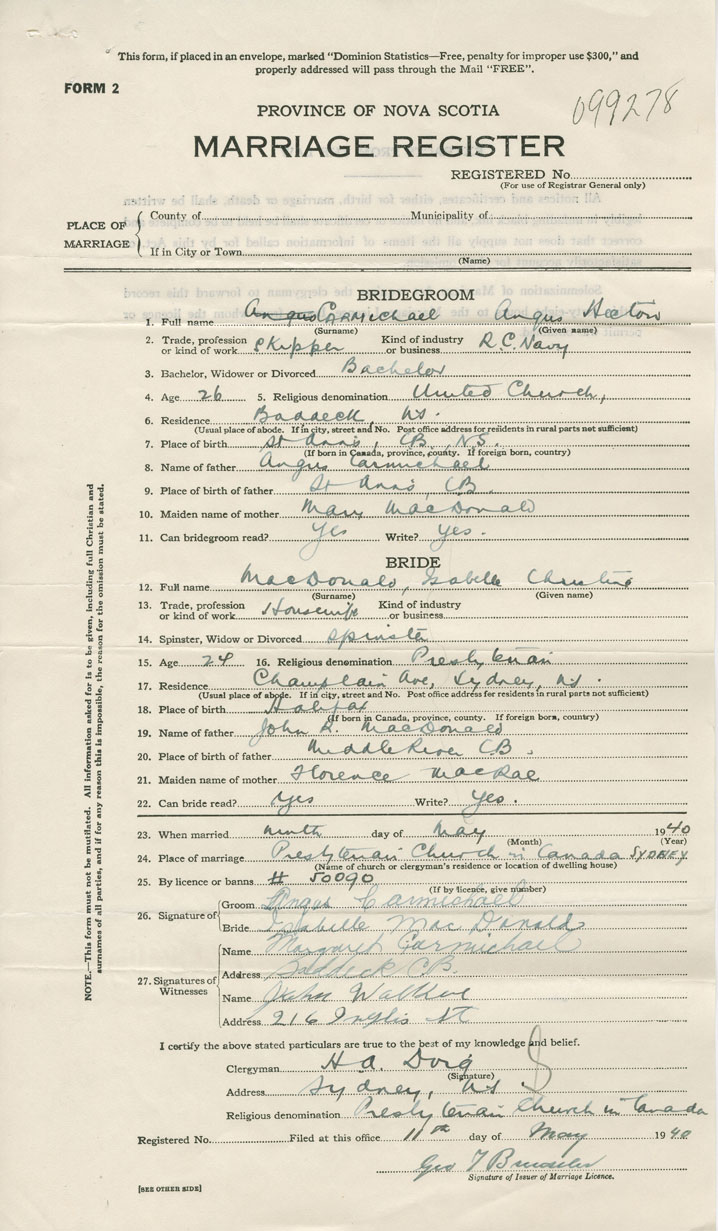 This form, if placed in an envelope, marked "Dominion Statistics—Free, penalty for improper use $300," and
properly addressed will pass through the Mail "FREE".
FORM 2
099278
PROVINCE OF NOVA SCOTIA
MARRIAGE REGISTER
REGISTERED No.
(For use of Registrar General only)
PLACE OF MARRIAGE
County of Municipality of
If in City or Town
(Name)
BRIDEGROOM
1. Full name Angus Carmichael Angus Hector
(Surname) (Given name)
2. Trade, profession or kind of work Skipper Kind of industry or business R.C. Navy
3. Bachelor, Widower or Divorced Bachelor
4. Age 26 5. Religious denomination United Church,
6. Residence Baddeck, N.S.
(Usual place of abode. If in city, street and No. Post office address for residents in rural parts not sufficient)
7. Place of birth St Anns, CB, N.S.
(If born in Canada, province, county. If foreign born, country)
8. Name of father Angus Carmichael
9. Place of birth of father St Anns, C.B.
10. Maiden name of mother Mary MacDonald
11. Can bridegroom read? Yes Write? Yes.
BRIDE
12. Full name MacDonald, Isabelle Christine
(Surname) (Given name)
13. Trade, profession or kind of work Housewife Kind of industry or business
14. Spinster, Widow or Divorced Spinster
15. Age 24 16. Religious denomination Presbyterian
17. Residence Champlain Ave, Sydney, N.S.
(Usual place of abode. If in city, street and No. Post office address for residents in rural parts not sufficient)
18. Place of birth Halifax
(If born in Canada, province, county. If foreign born, country)
19. Name of father John R. MacDonald
20. Place of birth of father Middle River CB.
21. Maiden name of mother Florence MacRae
22. Can bride read? Yes Write? Yes.
23. When married ninth day of May 1940
(Month) (Year)
24. Place of marriage Presbyterian Church in Canada SYDNEY
(Name of church or clergyman's residence or location of dwelling house)
25. By licence or banns # 50090
(If by licence, give number)
26. Signature of
Groom Angus Carmichael
Bride Isabelle MacDonald
27. Signatures of Witnesses
Name Margaret Carmichael
Address Baddeck C.B.
Name John
Address 216 Inglis St
I certify the above stated particulars are true to the best of my knowledge and belief.
Clergyman H.A. Doig
(Signature)
Address Sydney, N.S.
Religious denomination Presbyterian Church in Canada
Registered No. Filed at this office 11th day of May 1940
Geo T
Signature of Issuer of Marriage Licence.
[SEE OTHER SIDE]
NOTE.—This form must not be mutilated. All information asked for is to be given, including full Christian and
surnames of all parties, and if for any reason this is impossible, the reason for the omission must be stated.